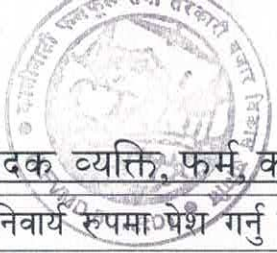 कालीमाटी फलफूल तथा तरकारी बजार विकास
दक व्यक्ति, फर्म, क
निवार्य रुपमा पेश गर्नु